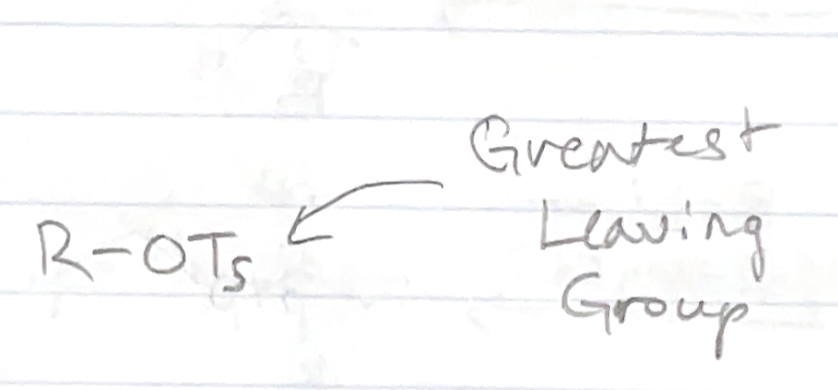 Greatest
Leaving
Group
R-OTs